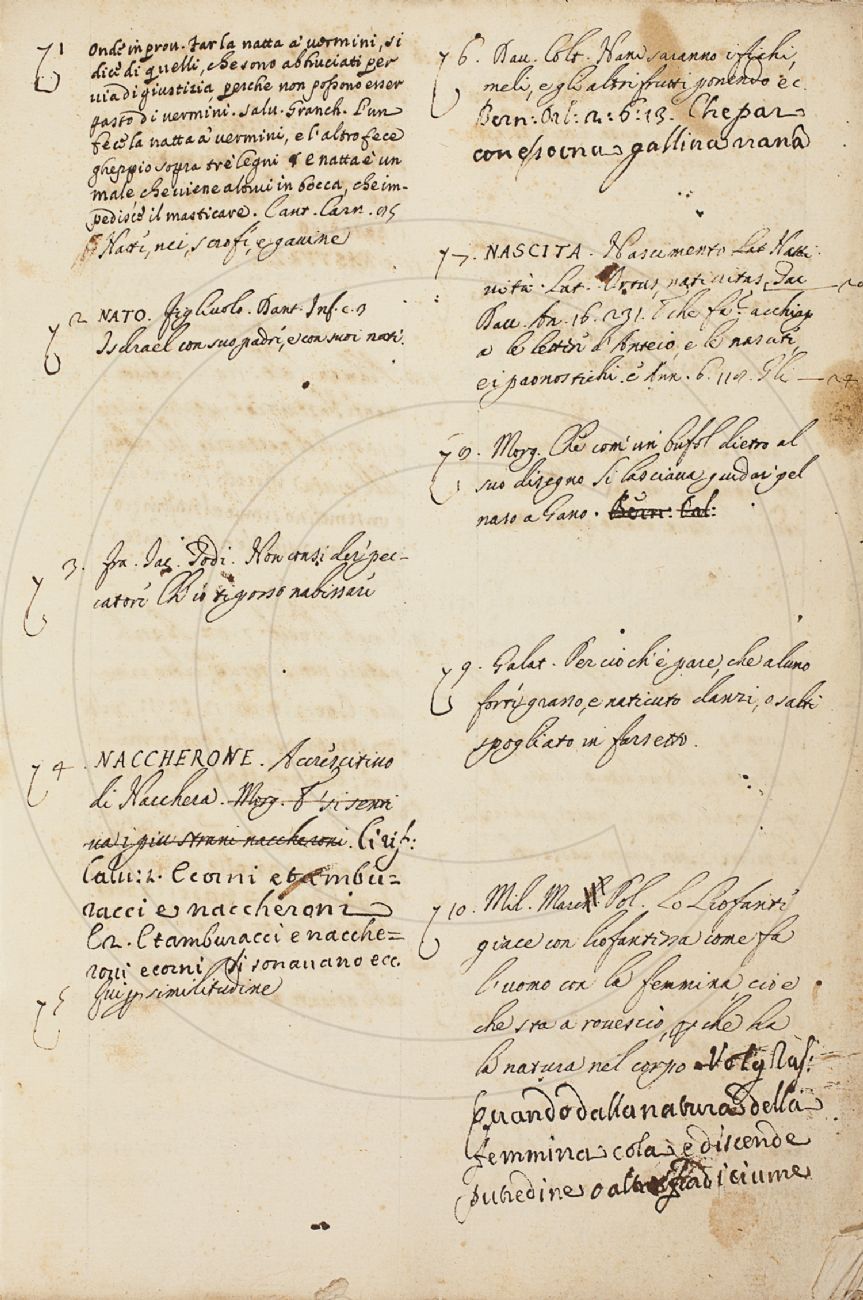 1 Onde in prou. Far la natta a' vermini, si
dice di quelli, che sono abbruciati per
via di giustizia perche non possono esser
pasto di vermini. Salu. Granch. L'un
fece la natta a' vermini, e l'altro fece
gheppio sopra tre legni & e natta è un
male, che viene altrui in bocca, che im-
pedisce il masticare. Cant. Carn. 95
Natte, nei, scrofe, e gauine
2 NATO. Figliuolo. Dant. Inf. c.
Isdrael con suo padre, e con suoi nati.
3. fra. Iac. Todi. Non considere pec-
catore Che io ti posso nabissare
4. NACCHERONE. Accrescitiuo
di Nacchera. Morg. E si senti
ua i piu strani naccheroni. Ciriff.
Calu: 2. E corni e tambu=
racci e naccheroni
E 2. E tamburacci e nacche=
roni e corni si sonauano ecc.
5 qui similitudine
6. Dau. Colt. Nani saranno i fichi,
meli, e gli altri frutti ponendo ec.
Bern: Orl: 2: 6: 13. Che par
con essa una gallina nana
7. NASCITA. Nascimento Lat Natti
uità. Lat. Ortus, natiuitas, Tac
Dau. An. 16. 231. E che fa acchiap
a le lettere d'Anteio, e le nascite,
e i pronostichi. e Ann. 6. 118. Gli
8. Morg. Che com' un bufol dietro al
suo disegno Si lasciaua guidar pel
naso a Gano. Bern: Cal:
9. Galat. Percioch' è pare, che alcuno
forte grasso, e naticuto danzi, o salti
spogliato in farsetto.
10. Mil. Marc Pol. Lo Liofante
giace con liofantessa come fa
l'uomo con la femmina, cioe
che sta a rouescio, perche ha
la natura nel corpo Volg Ras:
Quando dalla natura della
femmina cola e discende
putredine o altro